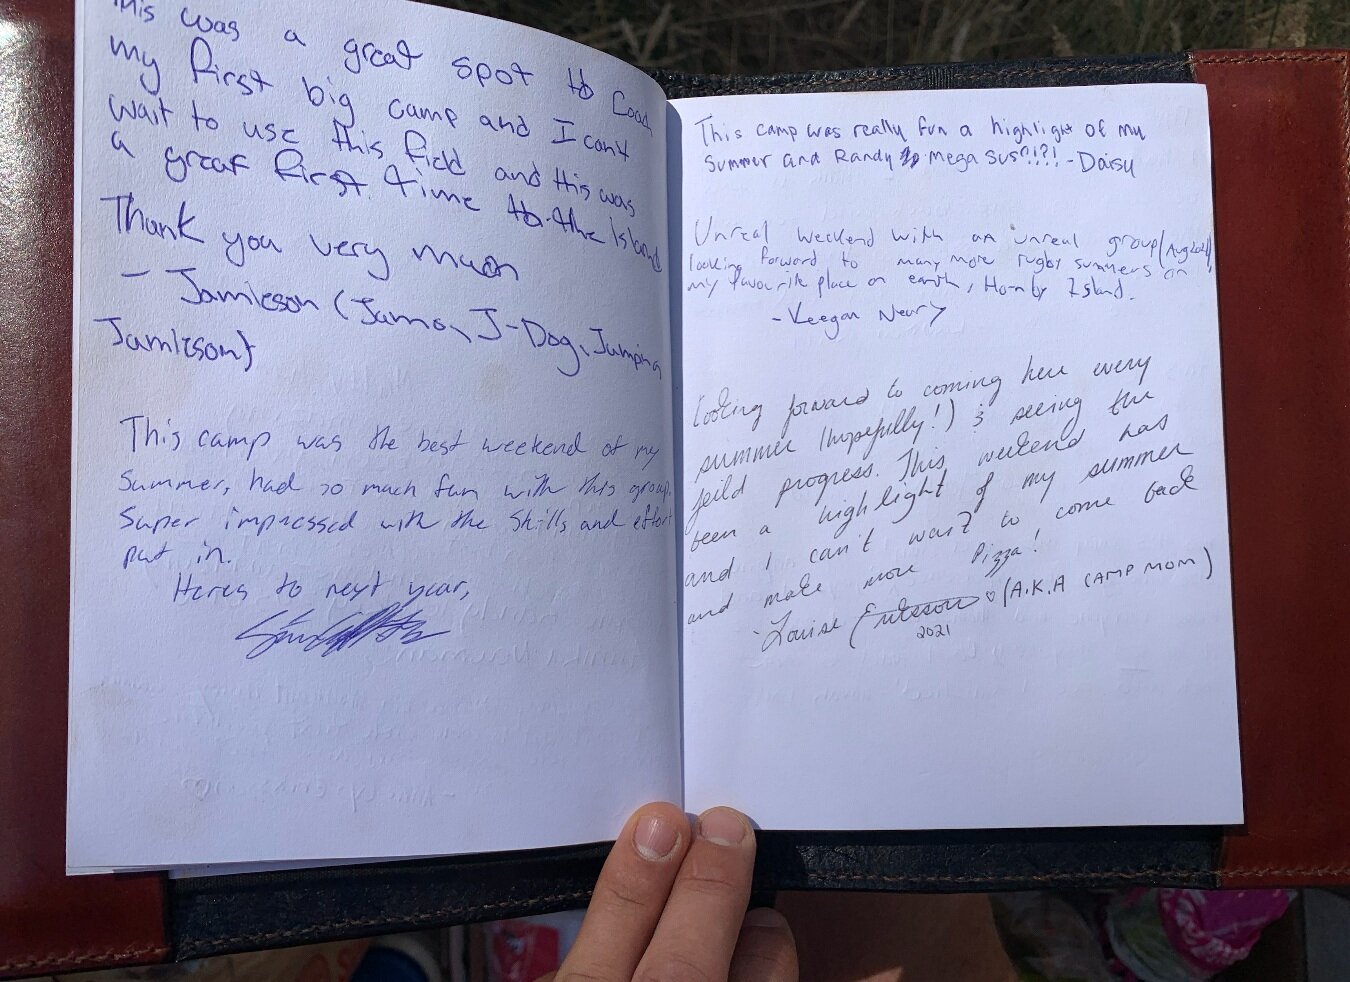 This was a great spot to Coach
my first big camp and I cant
wait to use this field and this was
a great first time to the island
Thank you very much
- Jamieson (Jamo, J-Dog, Jumping
Jamieson)
This camp was the best weekend of my
Summer, had so much fun with this group.
Super impressed with the skills and effort
put in.
Heres to next year,
This camp was really fun a highlight of my
summer and Randy mega sus?!?! - Daisy
Unreal weekend with an unreal group (Aug 2021)
looking forward to many more rugby summers on
my favourite place on earth, Hornby Island.
- Keegan Neary
Looking forward to coming here every
summer (hopefully!) & seeing the
feild progress. This weekend has
been a highlight of my summer
and I can't wait to come back
and make more Pizza!
- Louise Erickson ♡ (A.K.A CAMP MOM)
2021